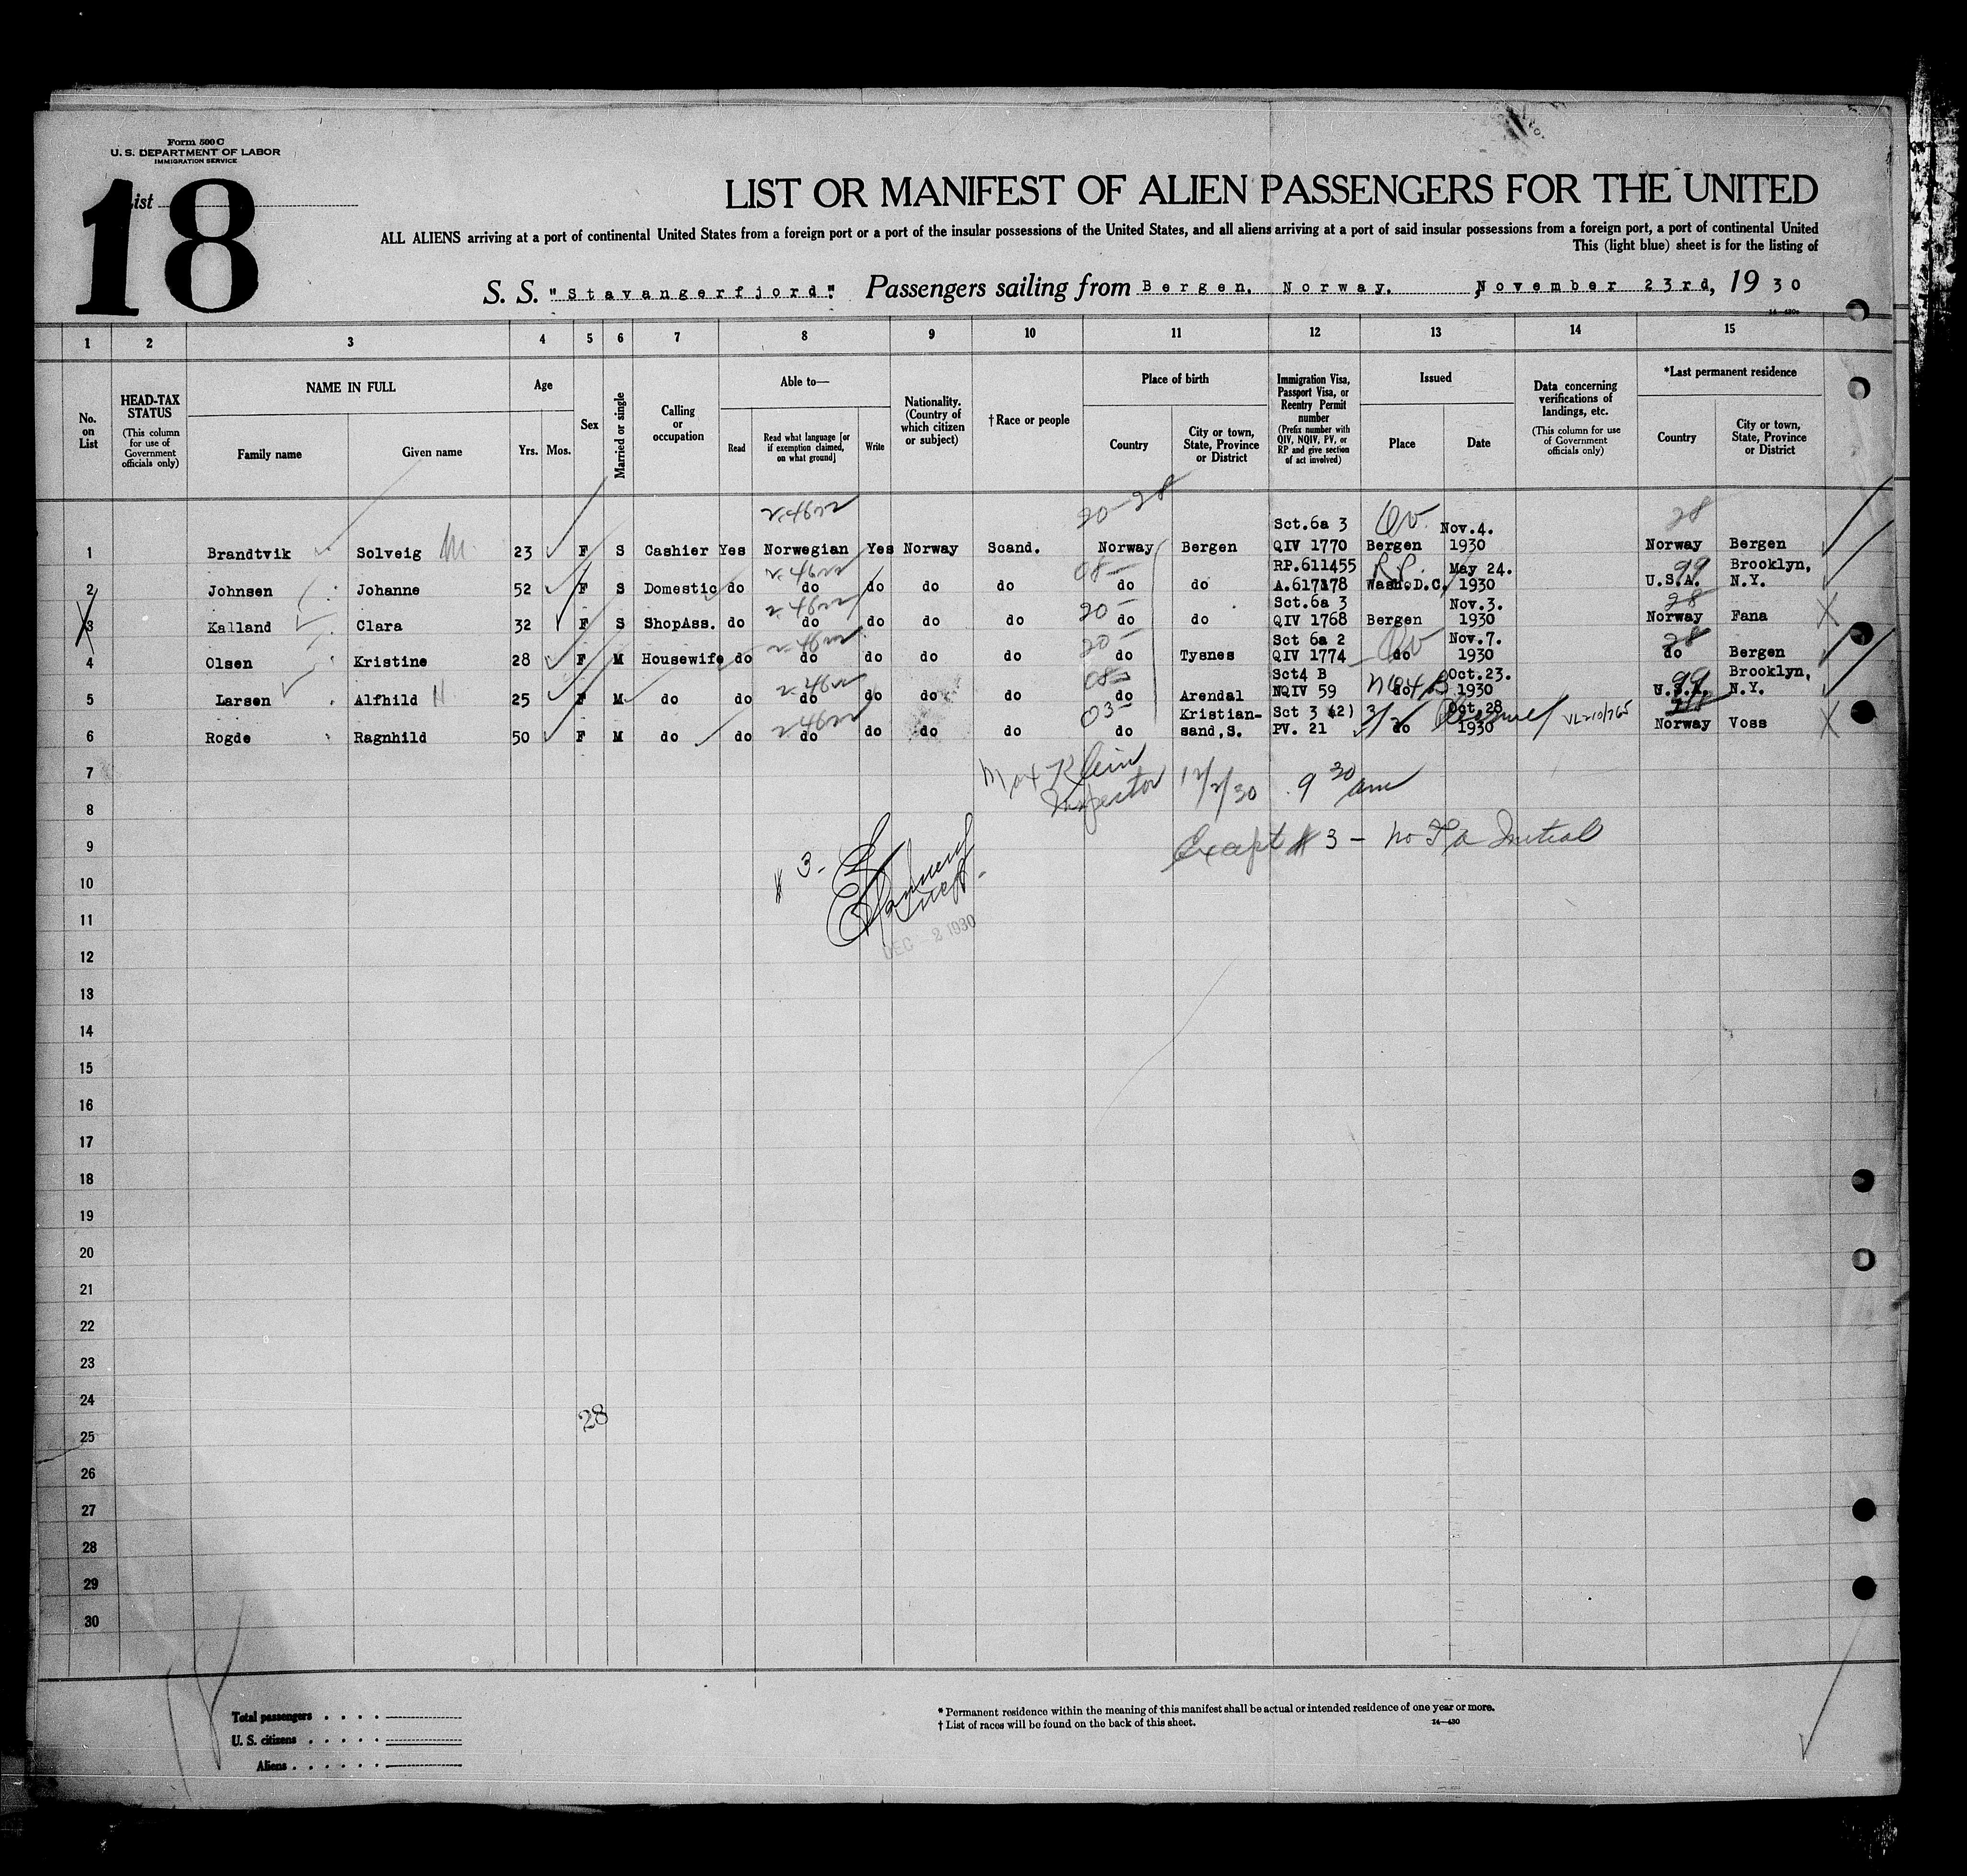 Form 500 C
U. S. DEPARTMENT OF LABOR
IMMIGRATION SERVICE
List
18
LIST OR MANIFEST OF ALIEN PASSENGERS FOR THE UNITED
ALL ALIENS arriving at a port of continental United States from a foreign port or a port of the insular possessions of the United States, and all aliens arriving at a port of said insular possessions from a foreign port, a port of continental United
This (light blue) sheet is for the listing of
S. S. "Stavangerfjord". Passengers sailing from Bergen, Norway, November 23rd, 19 30
1 2 3 4 5 6 7 8 9 10 11 12 13 14 15
No. on List
HEAD-TAX STATUS (This column for use of Government officials only)
NAME IN FULL Family name Given name
Age Yrs. Mos.
Sex
Married or single
Calling or occupation
Able to— Read Read what language [or if exemption claimed, on what ground] Write
Nationality. (Country of which citizen or subject)
† Race or people
Place of birth Country City or town, State, Province or District
Immigration Visa, Passport Visa, or Reentry Permit number (Prefix number with QIV, NQIV, PV, or RP and give section of act involved)
Issued Place Date
Data concerning verifications of landings, etc. (This column for use of Government officials only)
*Last permanent residence Country City or town, State, Province or District
20-28 28
1 Brandtvik Solveig 23 F S Cashier Yes Norwegian Yes Norway Scand. Norway Bergen Sct.6a 3 QIV 1770 Bergen Nov.4. 1930 Norway Bergen
08- R.P. 99
2 Johnsen Johanne 52 F S Domestic do do do do do do do RP.611455 A.617178 Wash.D.C. May 24. 1930 U.S.A. Brooklyn, N.Y.
20- 28
3 Kalland Clara 32 F S ShopAss. do do do do do do do Sct.6a 3 QIV 1768 Bergen Nov.3. 1930 Norway Fana
20- 28
4 Olsen Kristine 28 F M Housewife do do do do do do Tysnes Sct 6a 2 QIV 1774 do Nov.7. 1930 do Bergen
08- 99
5 Larsen Alfhild 25 F M do do do do do do do Arendal Sct4 B NQIV 59 do Oct.23. 1930 U.S.A. Brooklyn, N.Y.
03- VL210/765
6 Rogde Ragnhild 50 F M do do do do do do do Kristian-sand,S. Sct 3 (2) PV. 21 do Oct.28 1930 Norway Voss
7
Max Klein
Inspector 12/2/30 9 30 am
8
Except # 3 - no
9
# 3 -
10
11
DEC - 2 1930
12
13
14
15
16
17
18
19
20
21
22
23
24
28
25
26
27
28
29
30
Total passengers . . . .
U. S. citizens . . . . .
Aliens . . . . . .
* Permanent residence within the meaning of this manifest shall be actual or intended residence of one year or more.
† List of races will be found on the back of this sheet. 14—430